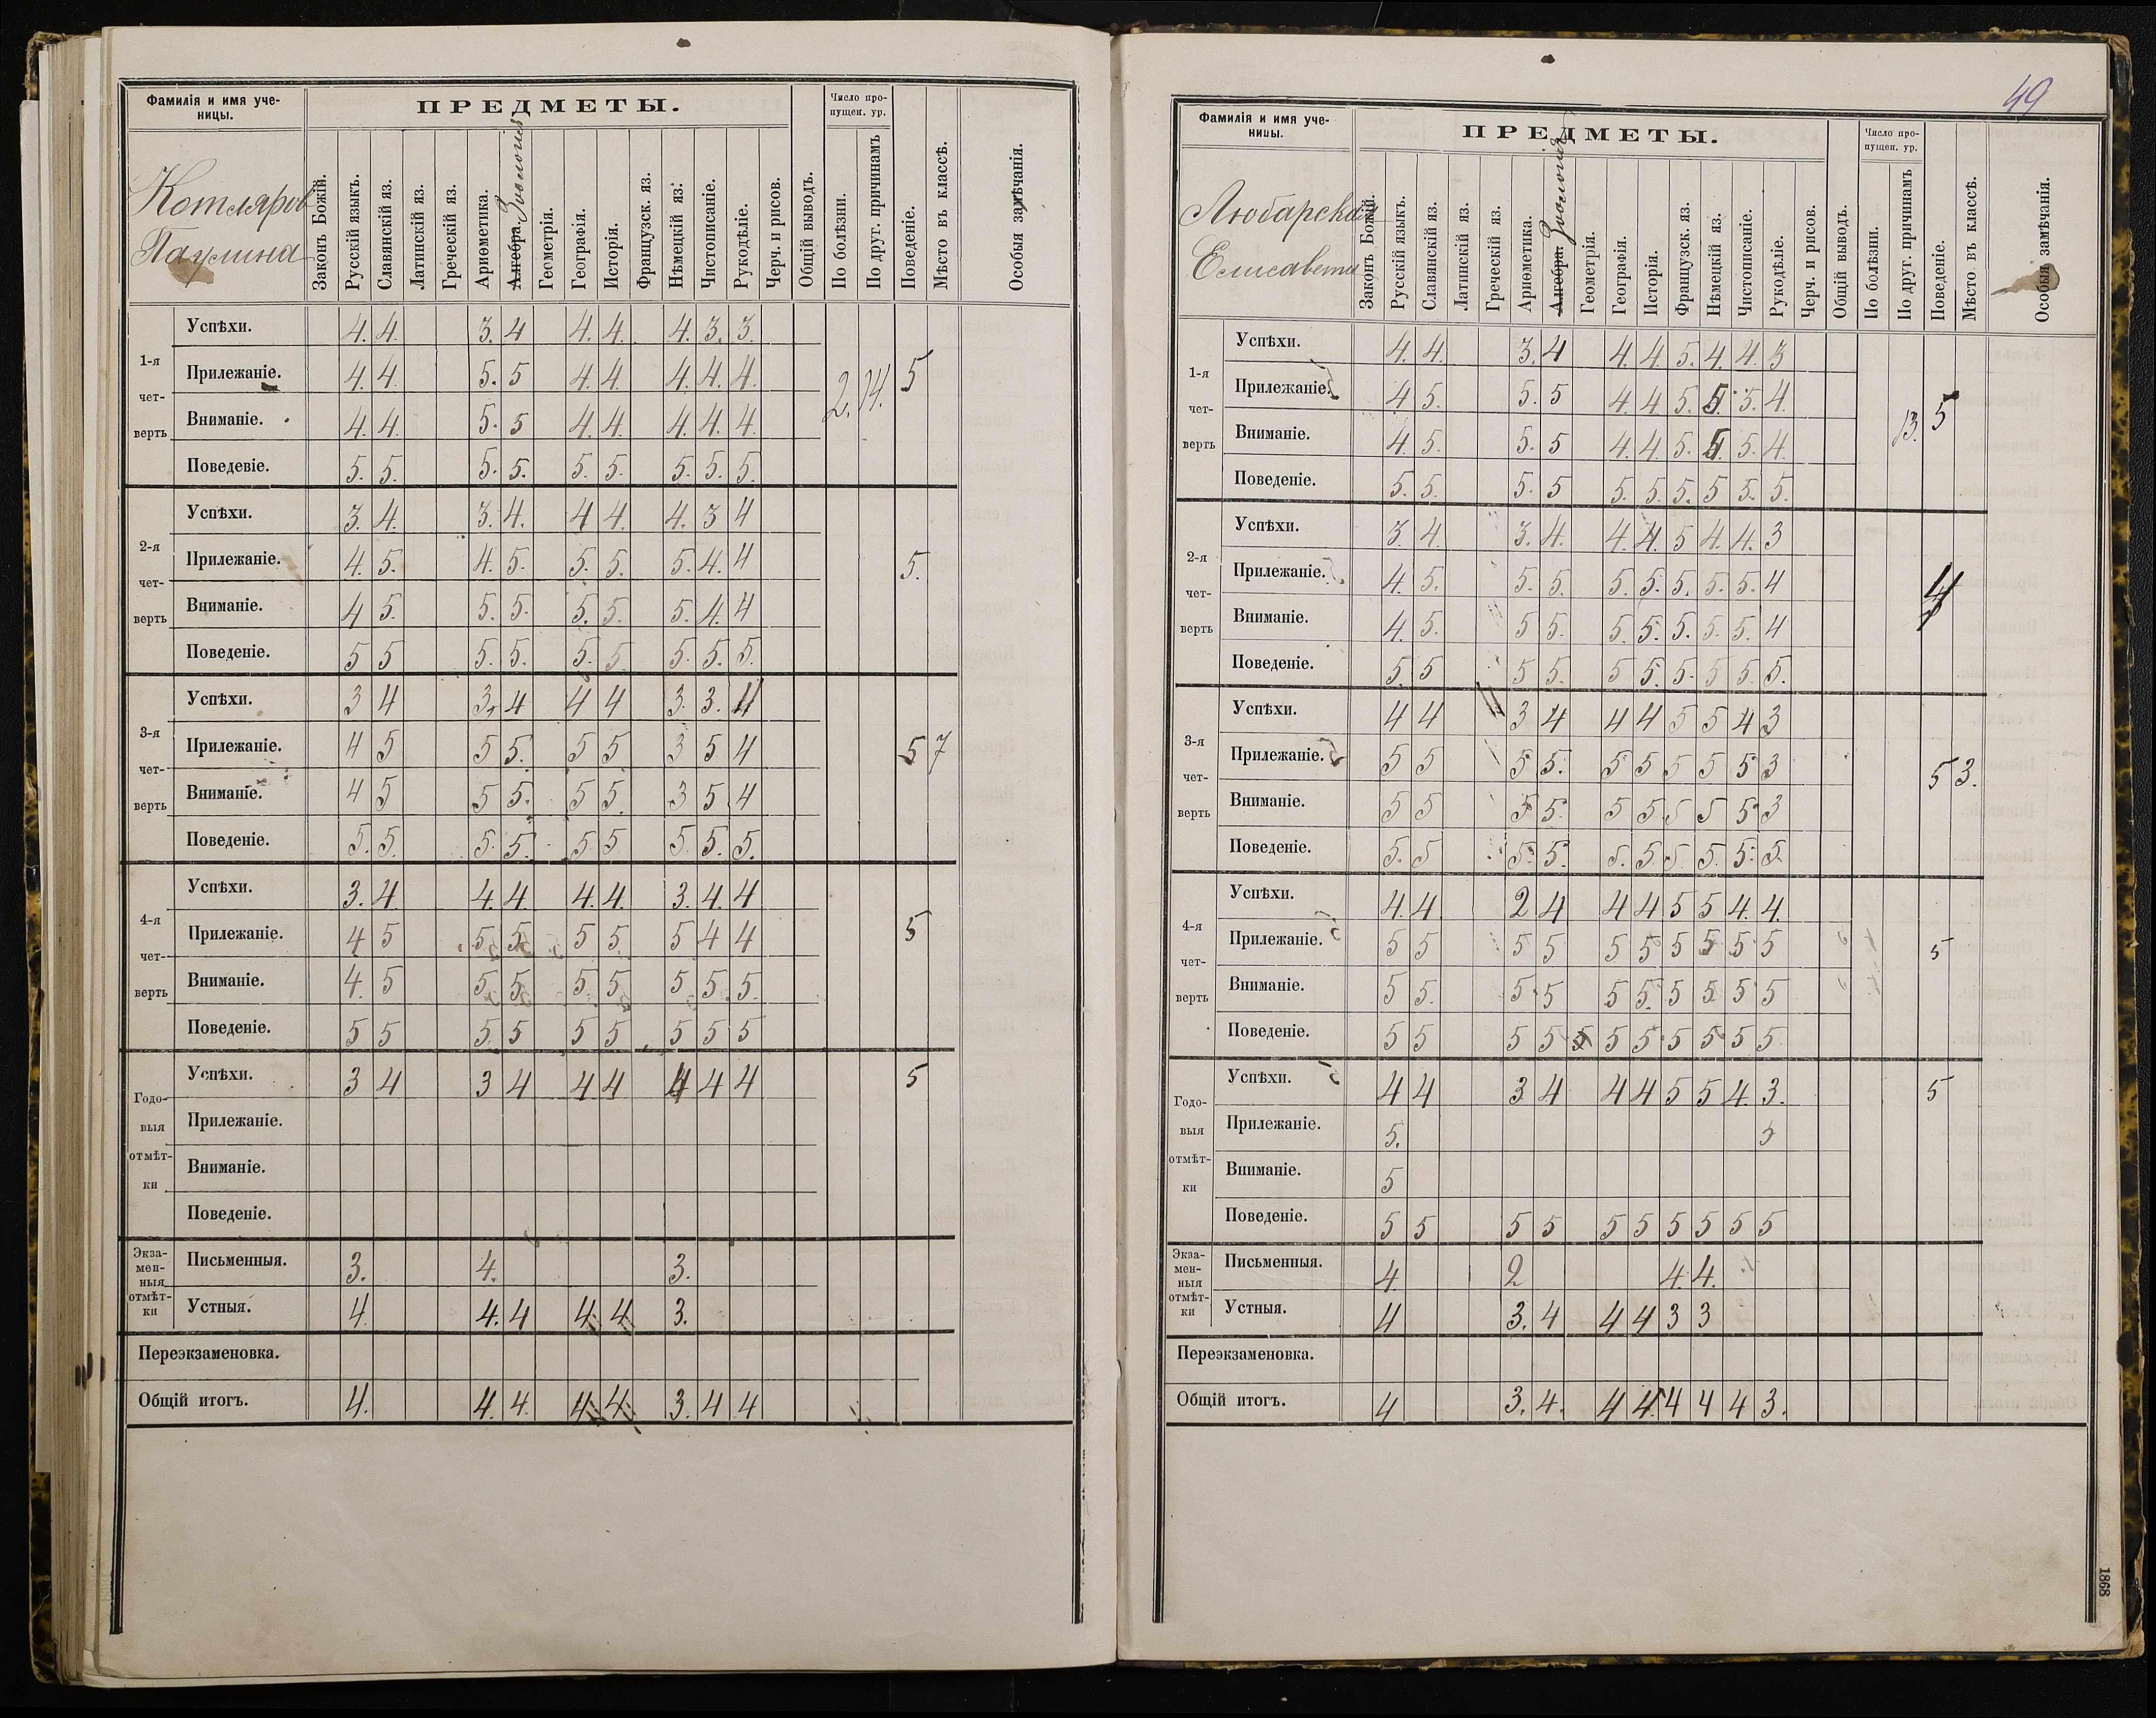 Фамилія и имя уче-
ницы.
ПРЕДМЕТЫ.
Число про-
пущен. ур.
Котляров
Паулина
Законъ Божій.
Русскій языкъ.
Славянскій яз.
Латинскій яз.
Греческій яз.
Ариѳметика.
Алгебра. Зоологія
Геометрія.
Географія.
Исторія.
Французск. яз.
Нѣмецкій яз.
Чистописаніе.
Рукодѣліе.
Черч. и рисов.
Общій выводъ.
По болѣзни.
По друг. причинамъ
Поведеніе.
Мѣсто въ классѣ.
Особыя замѣчанія.
1-я чет-верть
Успѣхи. 4. 4. 3. 4 4. 4. 4. 3. 3.
Прилежаніе. 4. 4. 5. 5 4. 4. 4. 4. 4. 2. 14. 5
Вниманіе. 4. 4. 5. 5 4. 4. 4. 4. 4.
Поведеніе. 5. 5. 5. 5. 5. 5. 5. 5. 5.
2-я чет-верть
Успѣхи. 3. 4. 3. 4. 4 4. 4. 3 4
Прилежаніе. 4. 5. 4. 5. 5. 5. 5. 4. 4 5.
Вниманіе. 4 5. 5. 5. 5. 5. 5. 4. 4
Поведеніе. 5 5 5. 5. 5. 5 5. 5. 5.
3-я чет-верть
Успѣхи. 3 4 3, 4 4 4 3. 3. 4
Прилежаніе. 4 5 5 5. 5 5 3 5 4 5 7
Вниманіе. 4 5 5 5. 5 5. 3 5 4
Поведеніе. 5. 5. 5. 5. 5 5 5. 5. 5.
4-я чет-верть
Успѣхи. 3. 4. 4. 4 4. 4. 3. 4. 4
Прилежаніе. 4 5 5 5 5 5. 5 4 4 5
Вниманіе. 4. 5 5 5 5. 5 5 5. 5.
Поведеніе. 5 5 5. 5 5 5 5 5 5
Годо-выя отмѣт-ки
Успѣхи. 3 4 3 4 4 4 4 4 4 5
Прилежаніе.
Вниманіе.
Поведеніе.
Экза-мен-ныя отмѣт-ки
Письменныя. 3. 4. 3.
Устныя. 4. 4. 4 4. 4 3.
Переэкзаменовка.
Общій итогъ. 4. 4. 4. 4. 4. 3. 4 4
49
Фамилія и имя уче-
ницы.
ПРЕДМЕТЫ.
Число про-
пущен. ур.
Любарская
Елисавета
Законъ Божій.
Русскій языкъ.
Славянскій яз.
Латинскій яз.
Греческій яз.
Ариѳметика.
Алгебра. Зоологія
Геометрія.
Географія.
Исторія.
Французск. яз.
Нѣмецкій яз.
Чистописаніе.
Рукодѣліе.
Черч. и рисов.
Общій выводъ.
По болѣзни.
По друг. причинамъ
Поведеніе.
Мѣсто въ классѣ.
Особыя замѣчанія.
1-я чет-верть
Успѣхи. 4. 4. 3. 4 4. 4. 5. 4. 4. 3
Прилежаніе. 4 5. 5. 5 4. 4 5. 5. 5. 4.
Вниманіе. 4. 5. 5. 5 4. 4. 5. 5. 5. 4. 13. 5
Поведеніе. 5. 5. 5. 5 5. 5. 5. 5 5. 5.
2-я чет-верть
Успѣхи. 3. 4. 3. 4. 4. 4. 5 4. 4. 3
Прилежаніе. 4. 5. 5. 5. 5. 5. 5. 5. 5. 4 4
Вниманіе. 4. 5. 5 5. 5. 5. 5. 5. 5. 4
Поведеніе. 5. 5 5 5. 5 5. 5. 5 5. 5.
3-я чет-верть
Успѣхи. 4 4 3 4 4 4 5 5 4 3
Прилежаніе. 5 5 5 5. 5 5 5 5 5 3 5 3.
Вниманіе. 5 5 5 5. 5 5 5 5 5 3
Поведеніе. 5. 5 5. 5. 5. 5. 5. 5. 5. 5.
4-я чет-верть
Успѣхи. 4. 4 2 4 4 4 5 5 4. 4.
Прилежаніе. 5 5 5 5 5 5 5 5 5 5 5
Вниманіе. 5 5. 5 5 5 5. 5 5 5 5
Поведеніе. 5 5 5 5 5 5 5 5 5 5 5
Годо-выя отмѣт-ки
Успѣхи. 4 4 3 4 4 4 5 5 4. 3. 5
Прилежаніе. 5. 5
Вниманіе. 5
Поведеніе. 5 5 5 5 5 5 5 5 5 5
Экза-мен-ныя отмѣт-ки
Письменныя. 4. 2 4. 4.
Устныя. 4 3. 4 4 4 3 3
Переэкзаменовка.
Общій итогъ. 4 3. 4. 4 4. 4 4 4 3.
1868